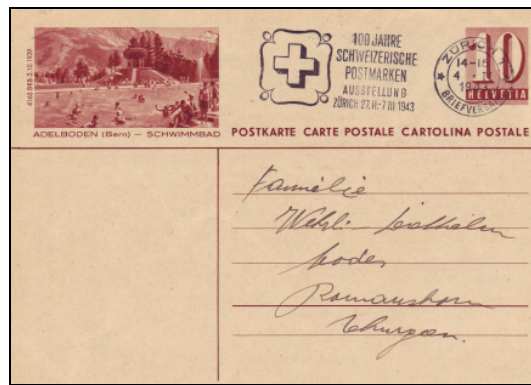 4165 DRB 3.10.1939
ADELBODEN (Bern) — SCHWIMMBAD
100 JAHRE
SCHWEIZERISCHE
POSTMARKEN
AUSSTELLUNG
ZÜRICH 27.II-7.III 1943
ZÜRICH
14-15
BRIEFVERSAND
10
HELVETIA
POSTKARTE CARTE POSTALE CARTOLINA POSTALE
Familie
Wehrli-
Modes
Romanshorn
Thurgau.